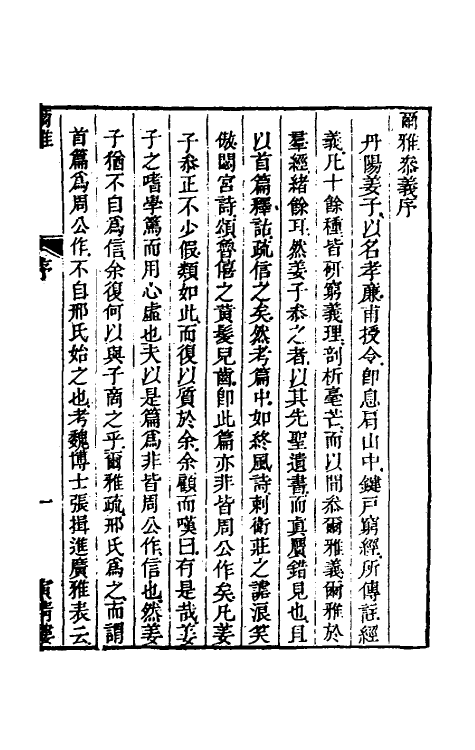 爾雅叅義序
丹陽姜子以名孝廉甫授令卽息肩山中鍵戸窮經所傳註經
義凡十餘種皆硏窮義理剖析毫芒而以間叅爾雅義爾雅於
羣經緒餘耳然姜子叅之者以其先聖遺書而真贋錯見也且
以首篇釋詁疏信之矣然考篇中如終風詩刺衛莊之謔浪笑
傲閟宮詩頌魯僖之黃髮兒齒卽此篇亦非皆周公作矣凡姜
子叅正不少假類如此而復以質於余余顧而嘆曰有是哉姜
子之嗜學篤而用心虛也夫以是篇爲非皆周公作信也然姜
子猶不自爲信余復何以與子商之乎爾雅疏邢氏爲之而謂
首篇爲周公作不自邢氏始之也考魏博士張揖進廣雅表云
爾雅
序
一
寅清樓